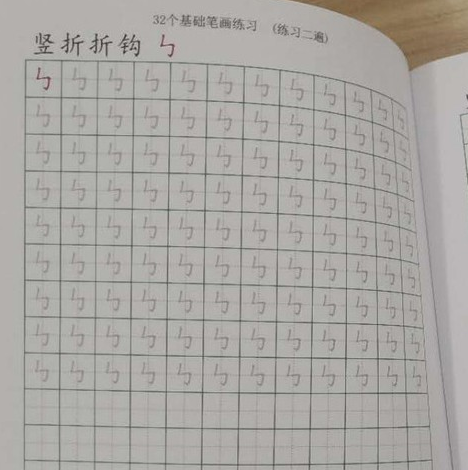 32个基础笔画练习 (练习二遍)
竖折折钩 ㄣ
ㄣ ㄣ ㄣ ㄣ ㄣ ㄣ ㄣ ㄣ ㄣ ㄣ ㄣ
ㄣ ㄣ ㄣ ㄣ ㄣ ㄣ ㄣ ㄣ ㄣ ㄣ ㄣ
ㄣ ㄣ ㄣ ㄣ ㄣ ㄣ ㄣ ㄣ ㄣ ㄣ ㄣ
ㄣ ㄣ ㄣ ㄣ ㄣ ㄣ ㄣ ㄣ ㄣ ㄣ ㄣ
ㄣ ㄣ ㄣ ㄣ ㄣ ㄣ ㄣ ㄣ ㄣ ㄣ ㄣ
ㄣ ㄣ ㄣ ㄣ ㄣ ㄣ ㄣ ㄣ ㄣ ㄣ ㄣ
ㄣ ㄣ ㄣ ㄣ ㄣ ㄣ ㄣ ㄣ ㄣ ㄣ ㄣ
ㄣ ㄣ ㄣ ㄣ ㄣ ㄣ ㄣ ㄣ ㄣ ㄣ ㄣ
ㄣ ㄣ ㄣ ㄣ ㄣ ㄣ ㄣ ㄣ ㄣ ㄣ ㄣ